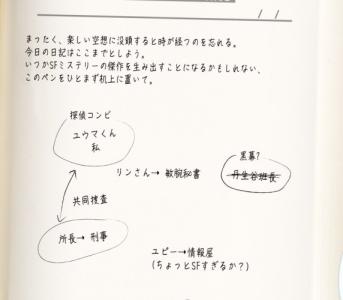 / /
まったく、楽しい空想に没頭すると時が経つのを忘れる。
今日の日記はここまでとしよう。
いつかSFミステリーの傑作を生み出すことになるかもしれない、
このペンをひとまず机上に置いて。
探偵コンビ
ユウマくん
私
黒幕?
リンさん→ 敏腕秘書
丹生谷班長
共同捜査
所長→ 刑事
ユピー→情報屋
(ちょっとSFすぎるか?)